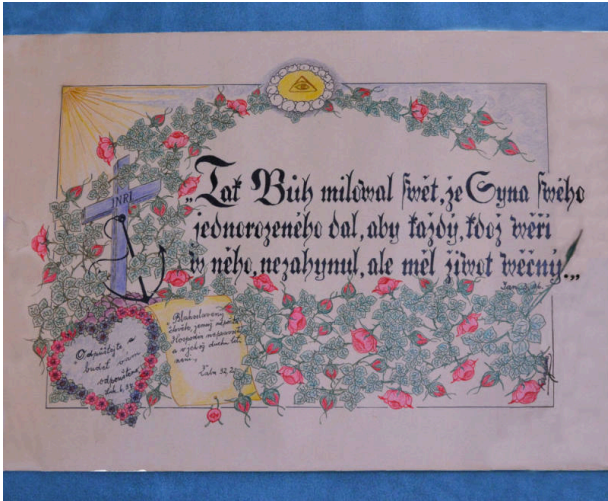 INRI
„Tak Bůh milowal swět, že Syna swého
jednorozeného dal, aby každý, kdož wěří
w něho, nezahynul, ale měl žiwot wěčný.„
Jan 3, 16.
Odpouštějte a
bude wám
odpuštěno
Luk. 6, 37
Blahoslavený
člověk, jemuž
Hospodin
a w jehož duchu
není
Žalm 32, 2